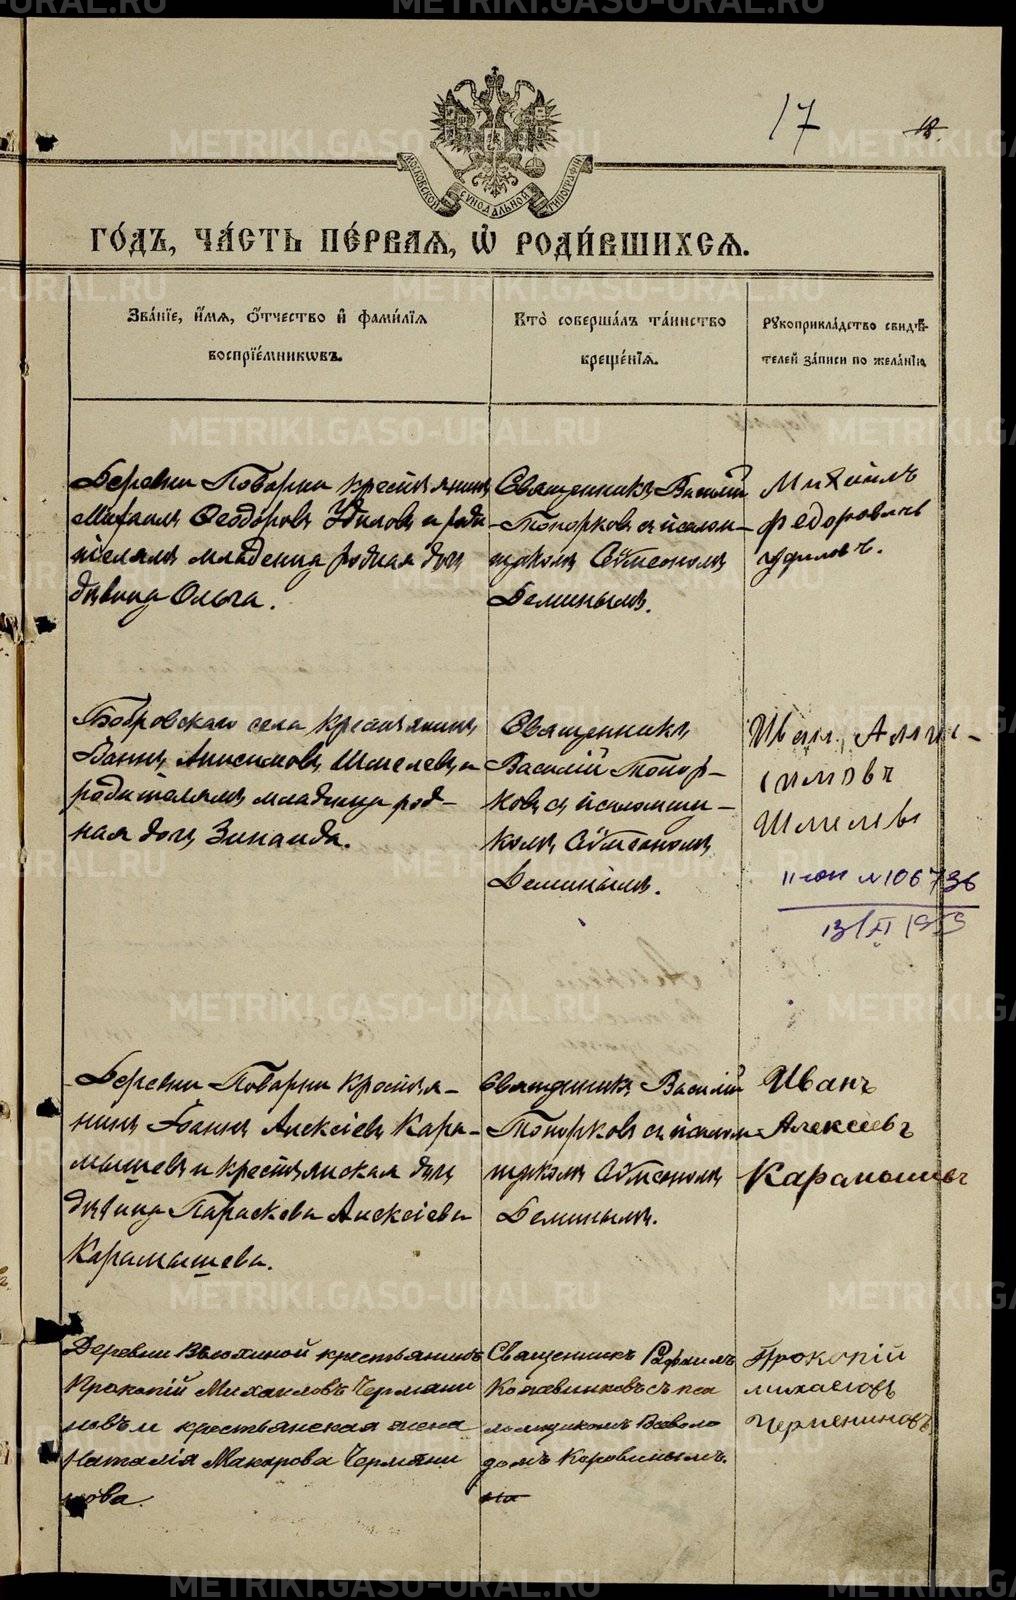 METRIKI.GASO-URAL.RU
17
18.
МОСКОВСКОЙ СУНОДАЛЬНОЙ ТИПОГРАФІИ
ГО́ДЪ, ЧА́СТЬ ПЕ́РВАЯ, Ѡ҆ РОДИ́ВШИХСЯ.
Зва́нїе, и҆́мѧ, ѻ҆́тчество и҆ фамилїѧ
воспрїе́мникѡвъ.
Кто̀ соверша́лъ та́инство
креще́нїѧ.
Рꙋкоприкла́дство свидѣ́-
телей за́писи по жела́нїю.
Деревни Поварни крестьянинъ
Михаилъ Ѳеодоровъ Удиловъ и роди
телямъ младенца родная дочь
дѣвица Ольга.
Священникъ Василій
Топорковъ съ псалом-
щикомъ Сѵмеономъ
Деминымъ.
Михаилъ
Федоровичъ
Удиловъ.
Бобровскаго села крестьянинъ
Іоаннъ Анисимовъ Шмелевъ и
родителямъ младенца род-
ная дочь Зинаида.
Священникъ
Василій Топор-
ковъ съ псаломщи-
комъ Сѵмеономъ
Деминымъ.
Иван Они-
симовъ
Шмелевъ
№ 106736
13/XI 1959
Деревни Поварни крестья-
нинъ Іоаннъ Алексіевъ Кара-
мышевъ и крестьянская дочь
дѣвица Параскева Алексіева
Карамышева.
Священникъ Василій
Топорковъ съ псалом-
щикомъ Сѵмеономъ
Деминымъ.
Иванъ
Алексеевъ
Карамышевъ
Деревни крестьянинъ
Прокопій Михаиловъ Чермяни
новъ и крестьянская жена
Наталія Макарова Чермяни
нова.
Священникъ Рафаилъ
съ пса
ломщикомъ Всеволо
домъ Коровинымъ.
Прокопій
Михаиловъ
Черменинов